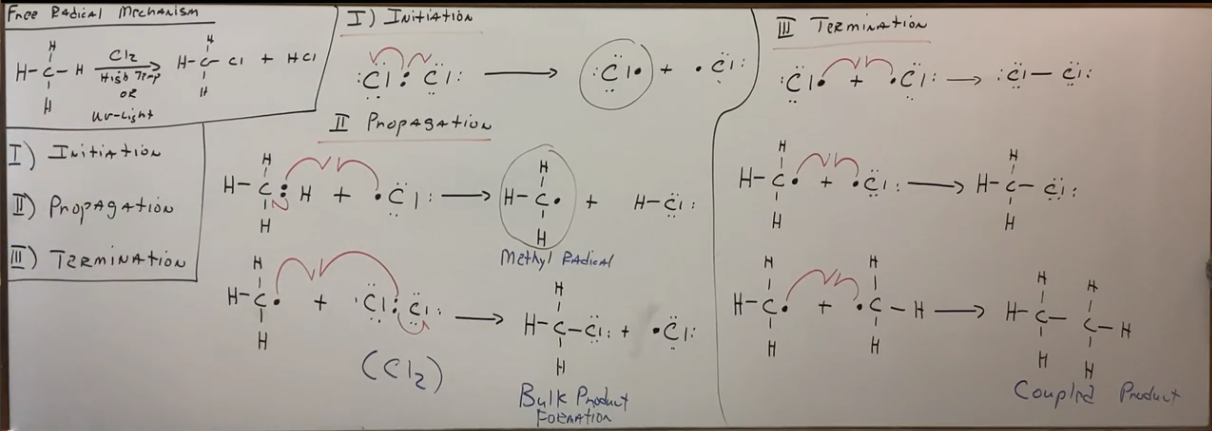 Free Radical Mechanism
H
H-C-H Cl2 High Temp OR UV-Light
H
H
H-C-Cl + HCl
H
I) Initiation
II) Propagation
III) Termination
I) Initiation
:Cl:Cl: → :Cl• + •Cl:
II Propagation
H
H-C:H + •Cl: → H-C• + H-Cl:
H
Methyl Radical
H
H-C• + :Cl:Cl: → H-C-Cl: + •Cl:
H
(Cl2)
Bulk Product
Formation
III Termination
:Cl• + •Cl: → :Cl-Cl:
H
H-C• + •Cl: → H-C-Cl:
H
H H
H-C• + •C-H → H-C-C-H
H H
Coupled Product